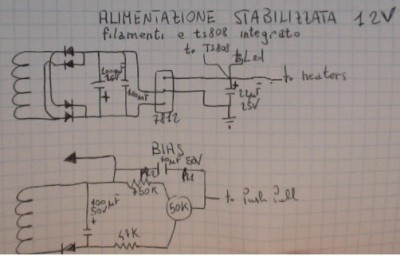 ALIMENTAZIONE STABILIZZATA 12V
filamenti e ts808 integrato
to TS808
to Led
to heaters
25V
100nF
7812
22µF
25V
BIAS
10µF 50V
150K
100µF
50V
50K
to Push Pull
47K